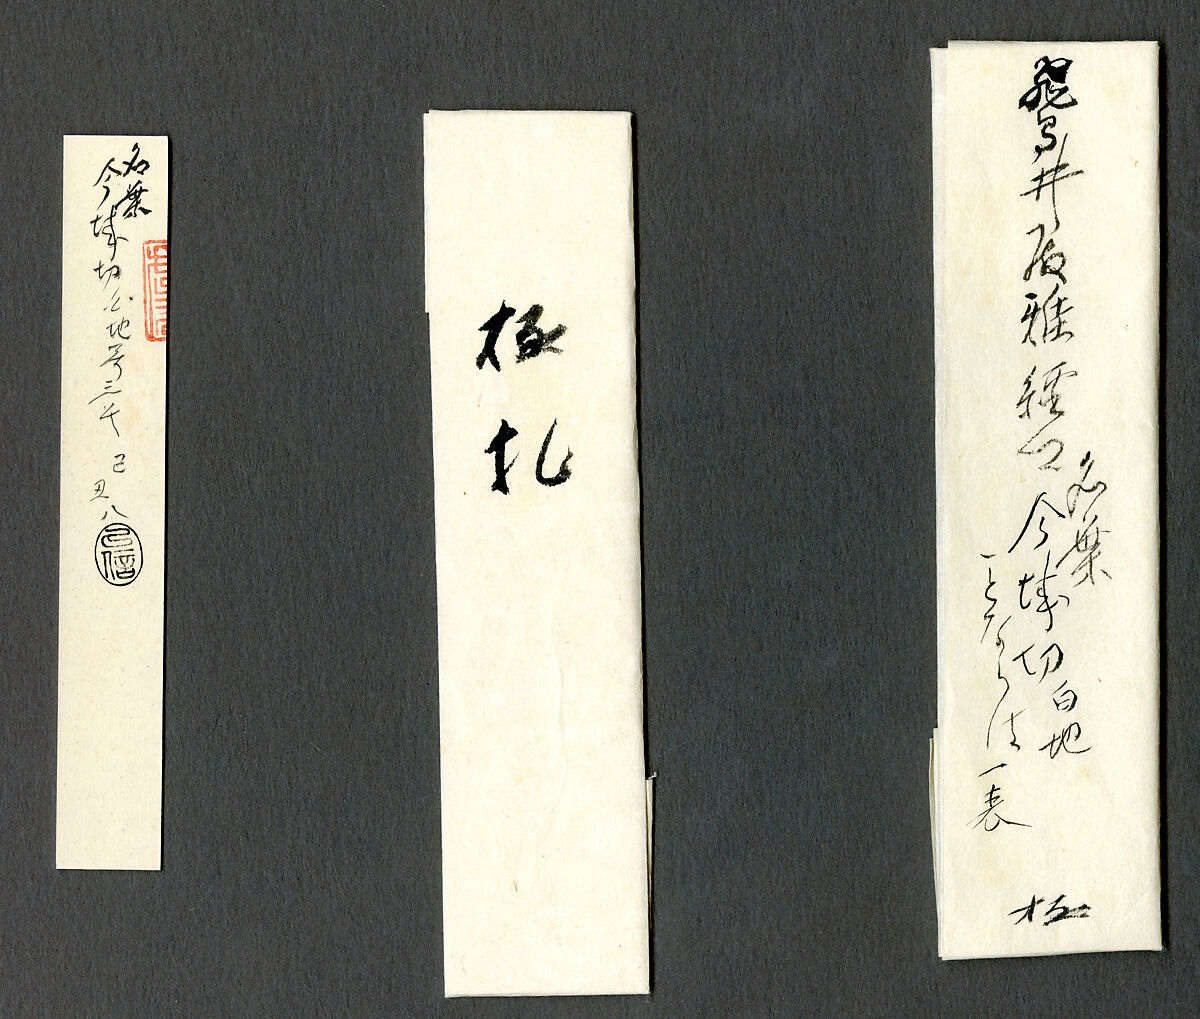 飛鳥井殿雅経卿
名葉
今城切
白地
ことならは 一表
極
極札
名葉
今城切白地哥三
己丑八